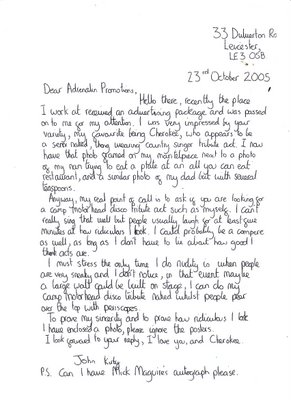 33 Dulverton Rd
Leicester,
LE3 0SB
23rd October 2005
Dear Adrenalin Promotions,
Hello there, recently the place
I work at received an advertising package and was passed
on to me for my attention. I was very impressed by your
variety, my favourite being Cherokee, who appears to be
a semi naked, thong wearing country singer tribute act. I now
have that photo framed on my mantelpiece next to a photo
of my nan trying to eat a plate at an all you can eat
restaurant, and a similar photo of my dad but with several
teaspoons.
Anyway, my real point of call is to ask if you are looking for
a camp motorhead disco tribute act such as myself. I can't
really sing that well but people usually laugh for at least five
minutes at how ridiculous I look. I could probably be a compere
as well, as long as I don't have to lie about how good I
think acts are.
I must stress the only time I do nudity is when people
are very sneaky and I don't notice, in that event maybe
a large wall could be built on stage, I can do my
camp motorhead disco tribute naked whilst people peer
over the top with periscopes
To prove my sincerity and to prove how ridiculous I look
I have enclosed a photo, please ignore the posters.
I look forward to your reply, I love you, and Cherokee.
John
P.S. Can I have Mick Maguire's autograph please.